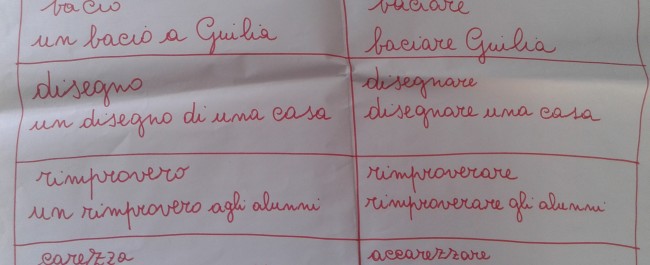 bacio
baciare
un bacio a Guilia
baciare Guilia
disegno
disegnare
un disegno di una casa
disegnare una casa
rimprovero
rimproverare
un rimprovero agli alunni
rimproverare gli alunni
carezza
accarezzare